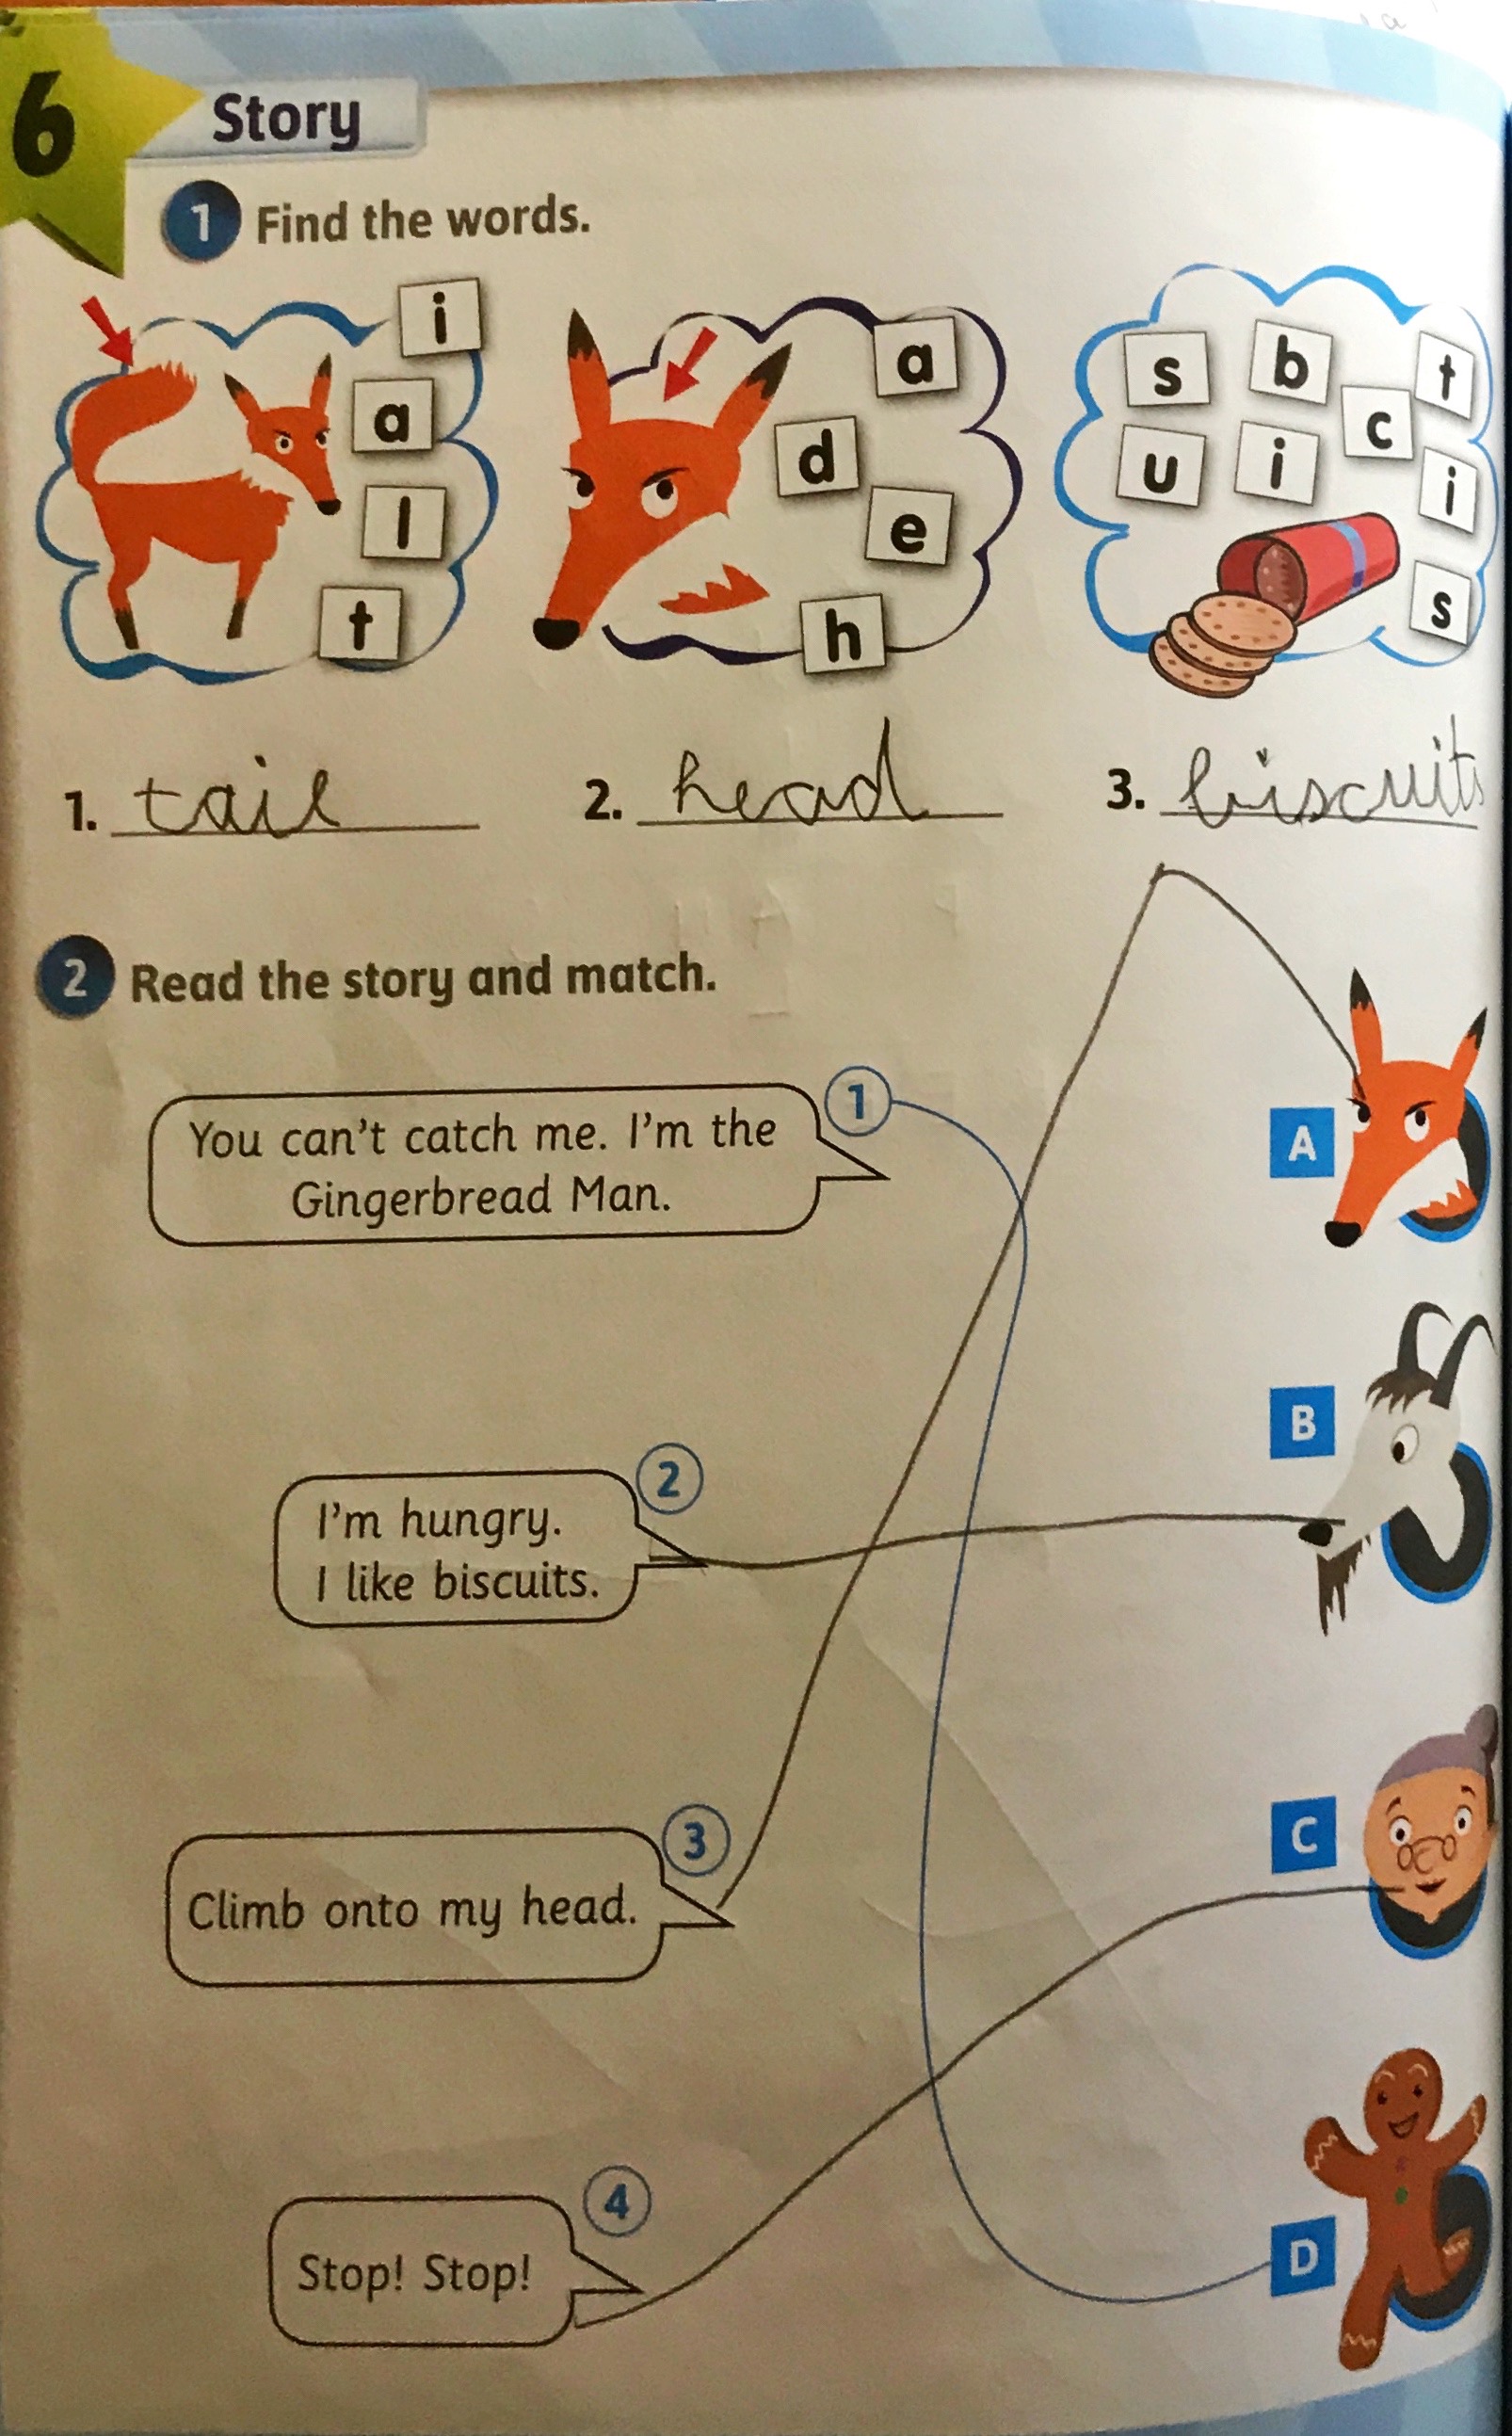 6
Story
1 Find the words.
i
a
l
t
a
d
e
h
s b t
c
u i
i
s
1. tail
2. head
3. biscuits
2 Read the story and match.
1
You can't catch me. I'm the
Gingerbread Man.
A
B
2
I'm hungry.
I like biscuits.
C
3
Climb onto my head.
4
Stop! Stop!
D